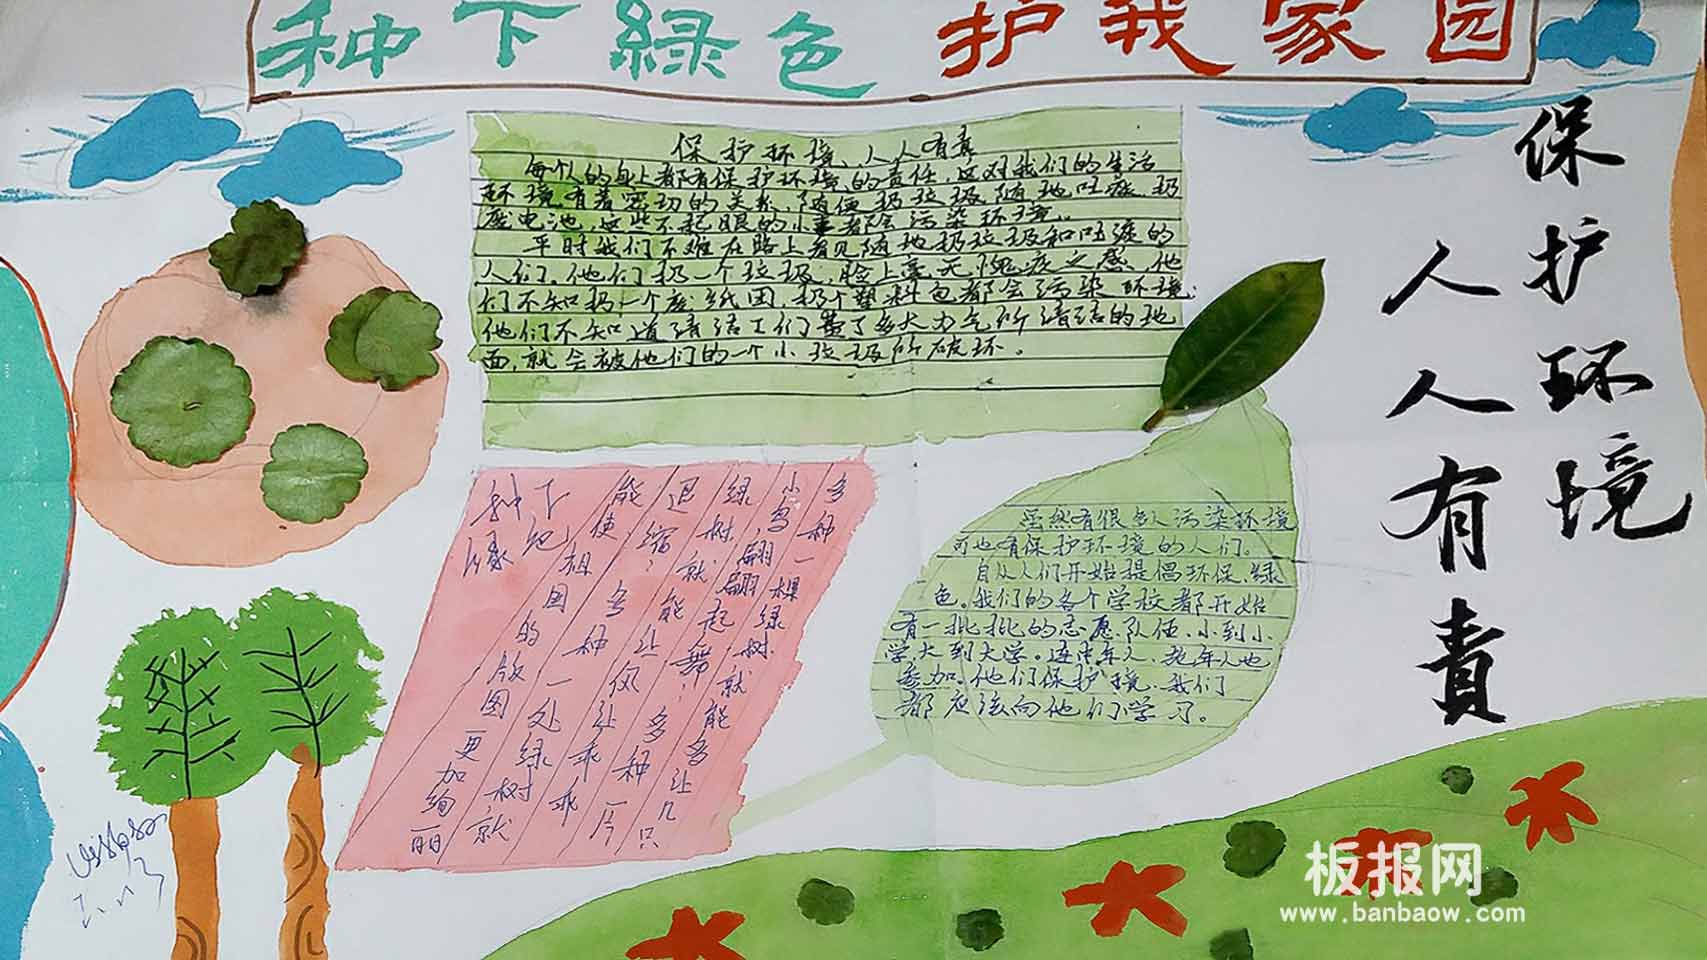 种下綠色 护我家园
保护环境、人人有责
每个人的身上都有保护环境的责任，这对我们的生活
环境有着密切的关系，随便扔垃圾，随地吐痰，扔
废电池，这些不起眼的小事都会污染环境。
平时我们不难在路上看见随地扔垃圾和吐痰的
人们。他们扔一个垃圾，脸上毫无愧疚之感，他
们不知扔一个废纸团，扔个塑料包都会污染环境
他们不知道清洁工们费了多大力气所清洁的地
面，就会被他们的一个小垃圾所破坏。
保护环境
人人有責
多种一棵绿树，就能多让几只
小鸟翩翩起舞；多种一片
绿树，就能让风沙乖乖
退缩；多种一处绿树，就
能使祖国的版图更加绚丽
种下
绿色
虽然有很多人污染环境
可也有保护环境的人们。
自从人们开始提倡环保、绿
色。我们的各个学校都开始
有一批批的志愿队伍，小到小
学，大到大学。连中年人、老年人也
参加。他们保护环境，我们
都应该向他们学习。
板报网
www.banbaow.com